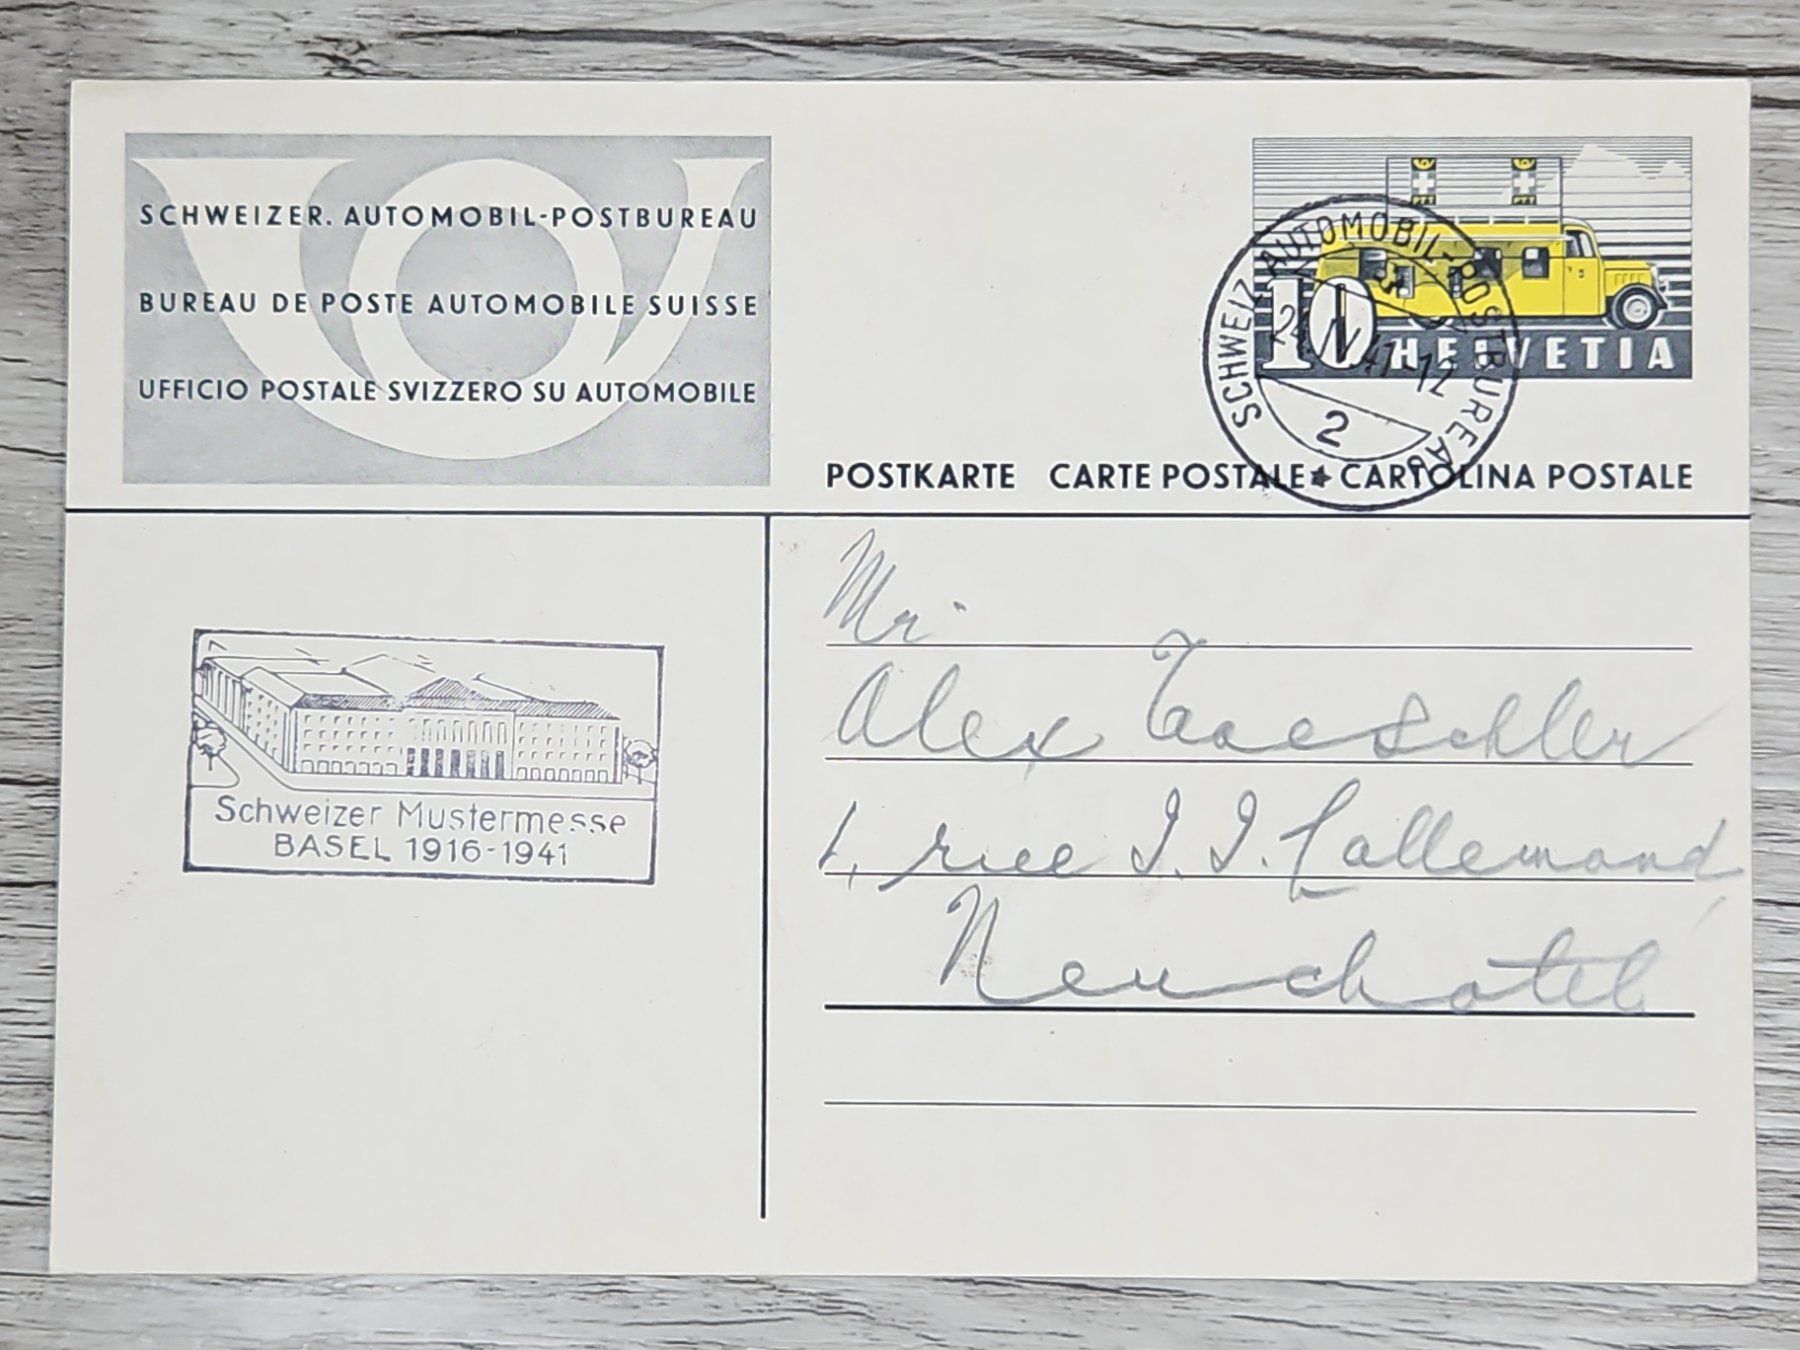 SCHWEIZER. AUTOMOBIL-POSTBUREAU
BUREAU DE POSTE AUTOMOBILE SUISSE
UFFICIO POSTALE SVIZZERO SU AUTOMOBILE
PTT PTT
10 HELVETIA
SCHWEIZ. AUTOMOBIL-POSTBUREAU
41-12
2
POSTKARTE CARTE POSTALE CARTOLINA POSTALE
Schweizer Mustermesse
BASEL 1916-1941
Mr.
Alex
1, rue J. J. Lallemand,
Neuchatel